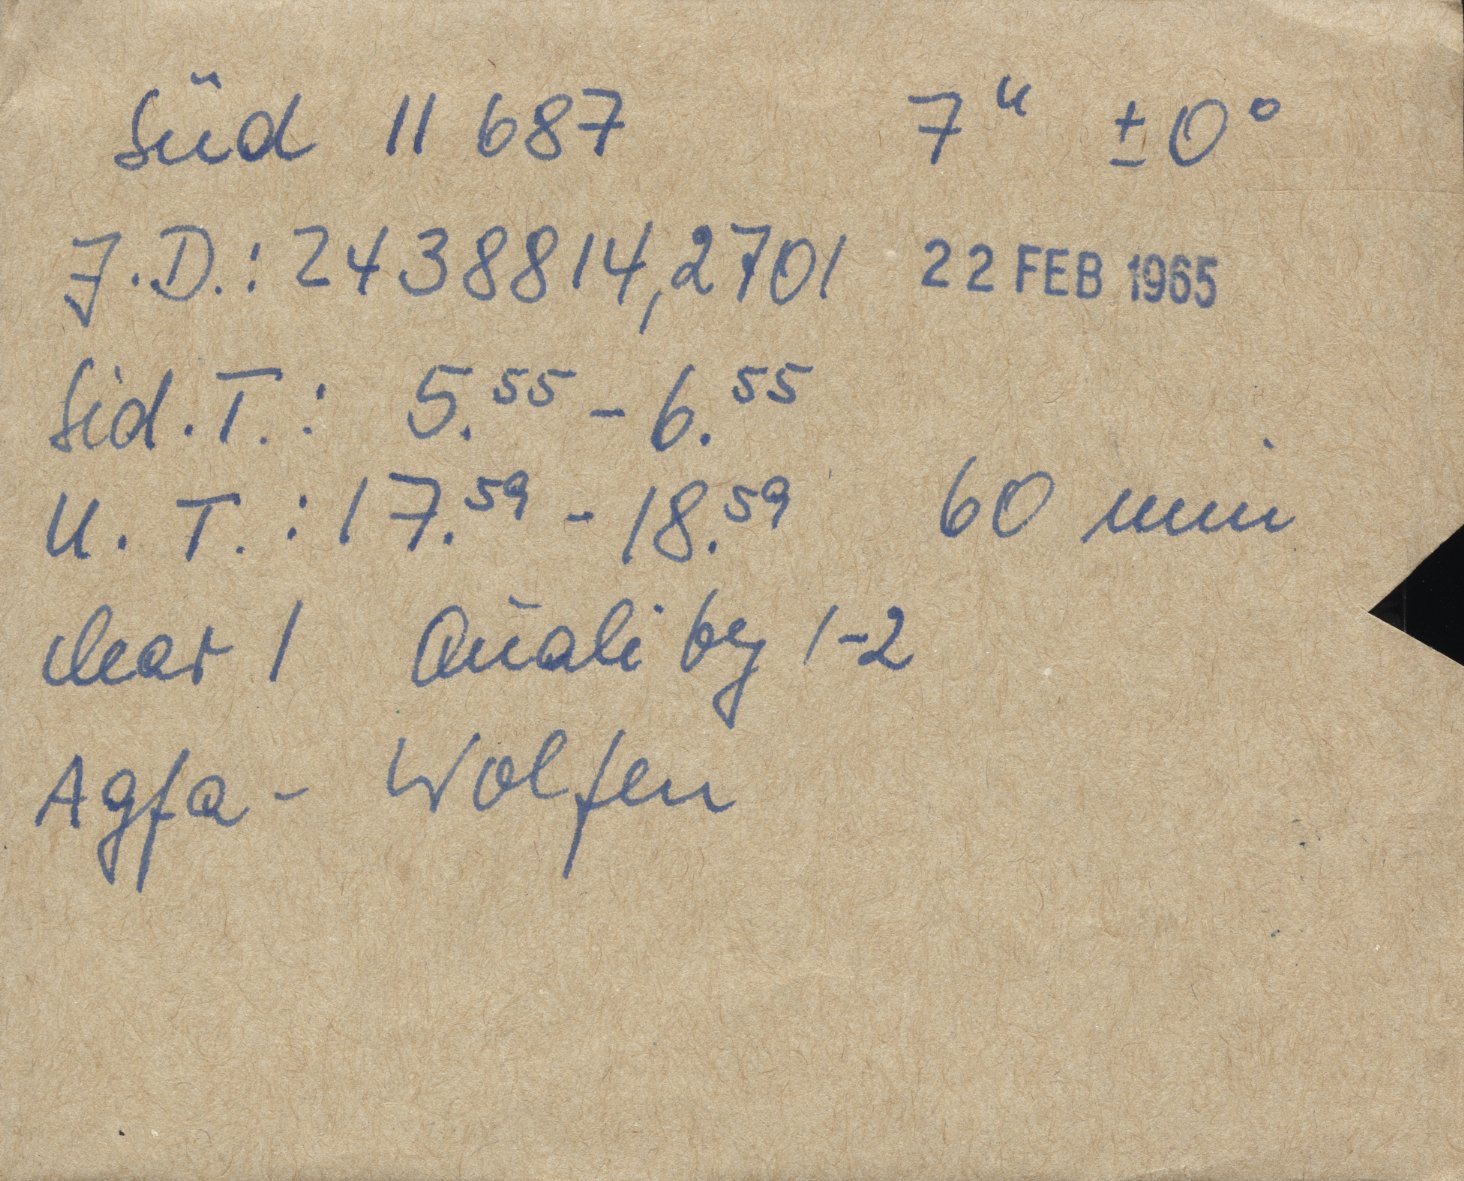 Süd 11 687 7ᵘ ±0°
J.D.: 2438814,2701 22 FEB 1965
Sid.T.: 5.⁵⁵ - 6.⁵⁵
U. T.: 17.⁵⁹ - 18.⁵⁹ 60 min
clear 1 Quality 1-2
Agfa - Wolfen